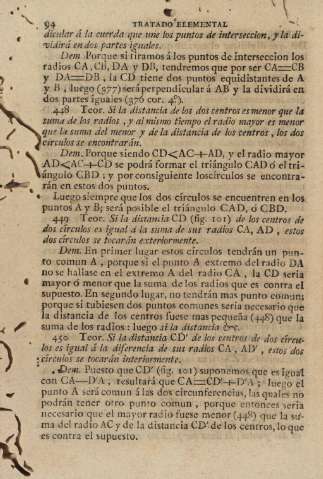 94 TRATADO ELEMENTAL
dicular á la cuerda que une los puntos de interseccion, y la di-
vidirá en dos partes iguales.
Dem. Porque si tiramos á los puntos de interseccion los
radios CA, CB, DA y DB, tendremos que por ser CA=CB
y DA=DB, la CD tiene dos puntos equidistantes de A
y B, luego (377) será perpendicular á AB y la dividirá en
dos partes iguales (376 cor. 4º).
448 Teor. Si la distancia de los dos centros es menor que la
suma de los radios, y al mismo tiempo el radio mayor es menor
que la suma del menor y de la distancia de los centros, los dos
círculos se encontrarán.
Dem. Porque siendo CD<AC+AD, y el radio mayor
AD<AC+CD se podrá formar el triángulo CAD ó el tri-
ángulo CBD; y por consiguiente los círculos se encontra-
rán en estos dos puntos.
Luego siempre que los dos círculos se encuentren en los
puntos A y B; será posible el triángulo CAD, ó CBD.
449 Teor. Si la distancia CD (fig. 101) de los centros de
dos círculos es igual á la suma de sus radios CA, AD, estos
dos círculos se tocarán exteriormente.
Dem. En primer lugar estos círculos tendrán un pun-
to comun A, porque si el punto A extremo del radio DA
no se hallase en el extremo A del radio CA, la CD seria
mayor ó menor que la suma de los radios que es contra el
supuesto. En segundo lugar, no tendrán mas punto comun;
porque si tubiesen dos puntos comunes seria necesario que
la distancia de los centros fuese mas pequeña (448) que la
suma de los radios: luego si la distancia &c.
450 Teor. Si la distancia CD' de los centros de dos círcu-
los es igual á la diferencia de sus radios CA, AD', estos dos
círculos se tocarán interiormente.
Dem. Puesto que CD' (fig. 101) suponemos que es igual
con CA—D'A, resultará que CA=CD'+D'A; luego el
punto A será comun á las dos circunferencias, las quales no
podrán tener otro punto comun, porque entonces seria
necesario que el mayor radio fuese menor (448) que la su-
ma del radio AC y de la distancia CD' de los centros, lo que
es contra el supuesto.